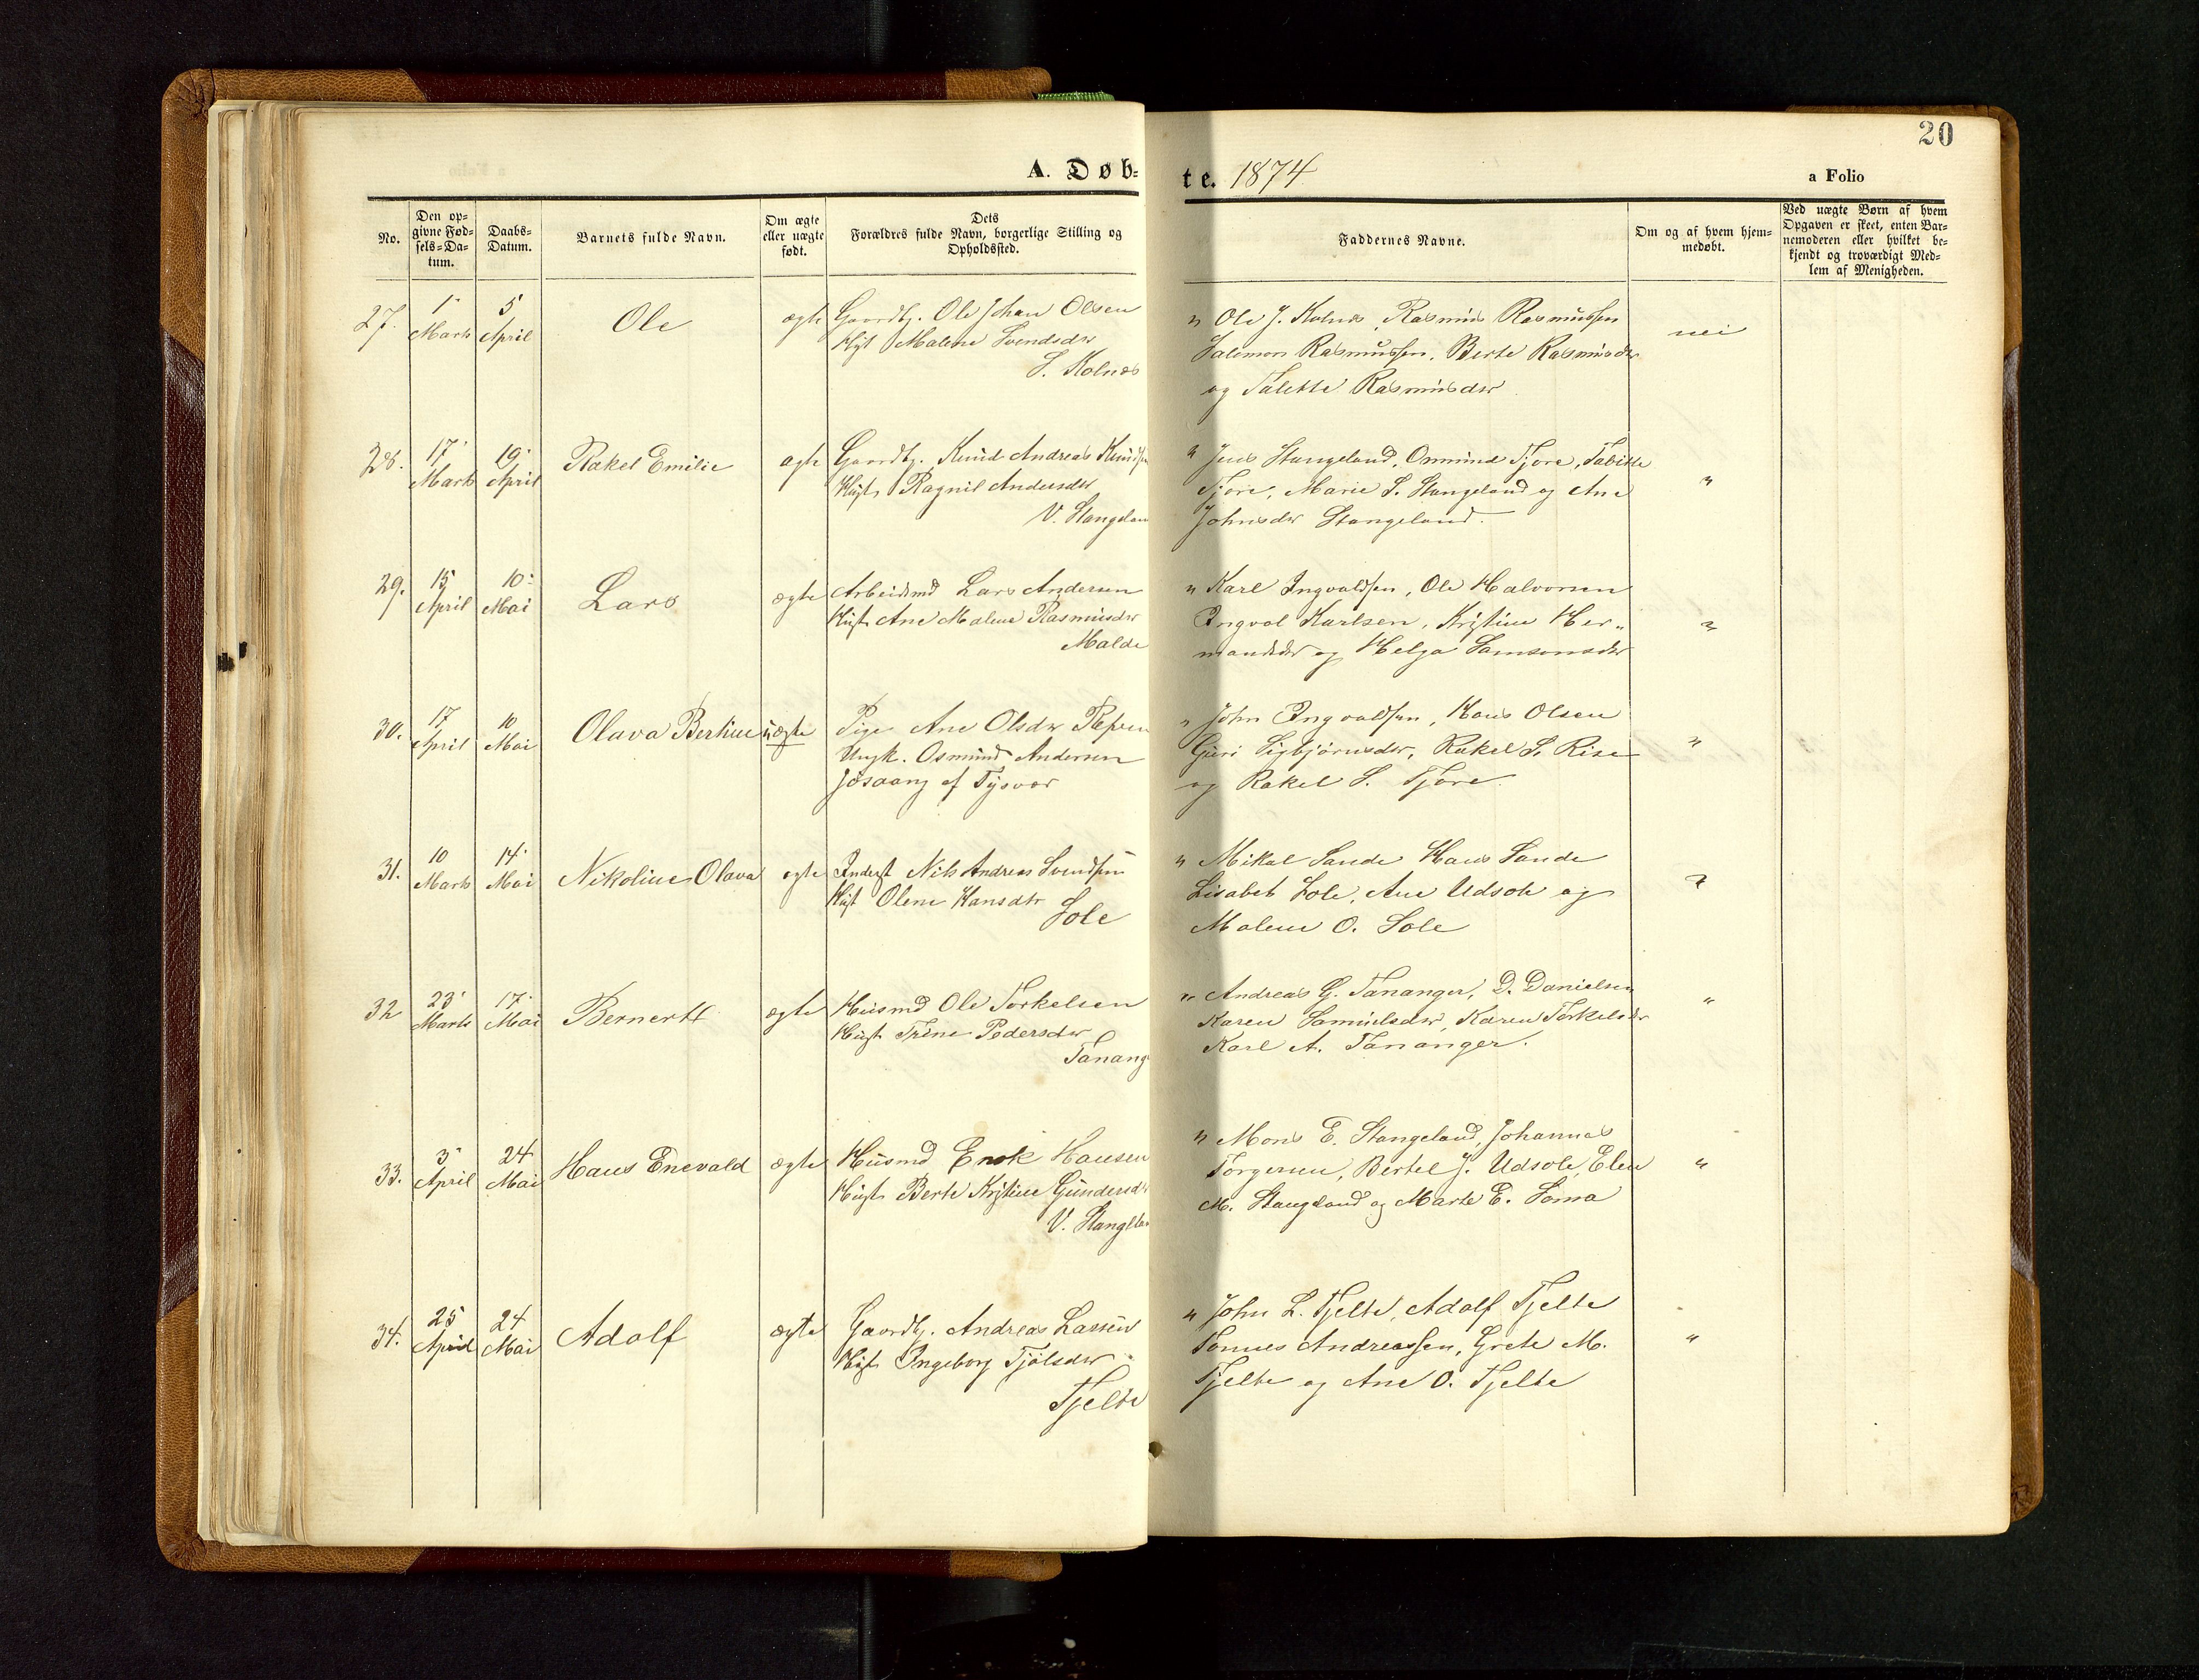 20
A. Døb=
te. 1874
a Folio
No.
Den op=
givne Fød=
sels=Da=
tum.
Daabs=
Datum.
Barnets fulde Navn.
Om ægte
eller uægte
født.
Dets
Forældres fulde Navn, borgerlige Stilling og
Opholdssted.
Faddernes Navne.
Om og af hvem hjem=
medøbt.
Ved uægte Børn af hvem
Opgaven er skeet, enten Bar=
nemoderen eller hvilket be=
kjendt og troværdigt Med=
lem af Menigheden.
27.
1
Marts
5
April
Ole
ægte
Gaardbr. Ole Johan Olsen
Hust Malene Svendsdr
S. Kolnes
" Ole J. Kolnes, Rasmus Rasmussen
Salemon Rasmussen, Berte Rasmusdr
og Talette Rasmusdr
nei
28.
17
Marts
19
April
Rakel Emilie
ægte
Gaardbr. Knud Andreas Knuds
Hust Ragnil Andersdr
V. Stangelan
" Jens Stangeland, Ommund Tjore, Tabitte
Tjore, Marie S. Stangeland og Ane
Johnsdr Stangeland.
"
29.
15
April
10
Mai
Lars
ægte
Arbeidsmd Lars Andersen
Hust Ane Malene Rasmusdr
Malde
" Karl Ingvaldsen, Ole Halvorsen
Ingval Karlsen, Kristine Her„
mansdr og Helga Samsonsdr
"
30.
17
April
10
Mai
Olava Bertine
uægte
Pige Ane Olsdr
Ungk. Osmund Andersen
Jøsaang af Tysvær
" John Ingvaldsen, Hans Olsen
Guri Sigbjørnsdr, Rakel S. Risa
og Rakel S. Tjore.
"
31.
10
Marts
14
Mai
Nikoline Olava
ægte
Inderst Nils Andreas Svendsen
Hust Olene Hansdtr
Sole
" Mikal Sande Hans Sande
Lisabet Sole, Ane Udsole og
Malene O. Sole
"
32
23
Marts
17
Mai
Bernertt
ægte
Husmd Ole Torkelsen
Hust Trine Pedersdr
Tanang
" Andreas G. Tananger, D. Danielsen
Karen Samuelsdr, Karen Torkelsdr
Karl A. Tananger.
"
33.
3
April
24
Mai
Hans Enevald
ægte
Husmd Enok Hansen
Hust Berte Kristine Gundersd
V. Stangela
" Mons E. Stangeland, Johannes
Torgersen, Bertel J. Udsole, Elen
M. Stangeland og Marte E. Soma
"
34.
25
April
24
Mai
Adolf
ægte
Gaardbr. Andreas Larsen
Hust Ingeborg Tjølsdr
Tjelte
" John L. Tjelte, Adolf Tjelte
Tønnes Andreassen, Grete M.
Tjelte og Ane O. Tjelte
"